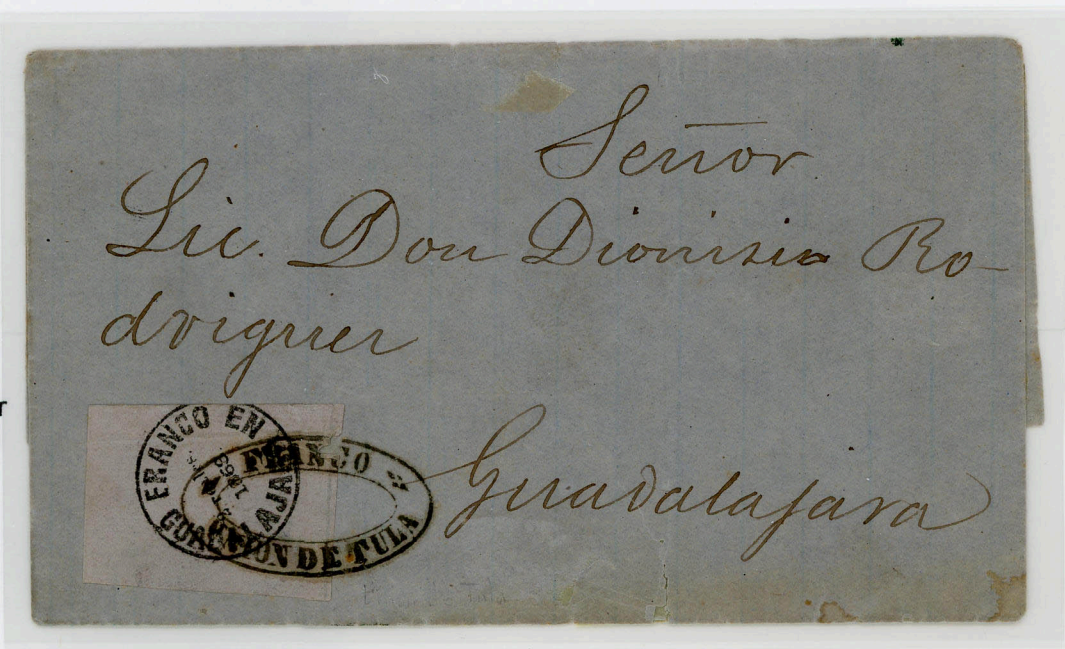 Señor
Lic. Don Dionisio Ro-
driguez
Guadalajara
FRANCO EN
GUADALAJARA
1869
FRANCO
UNION DE TULA